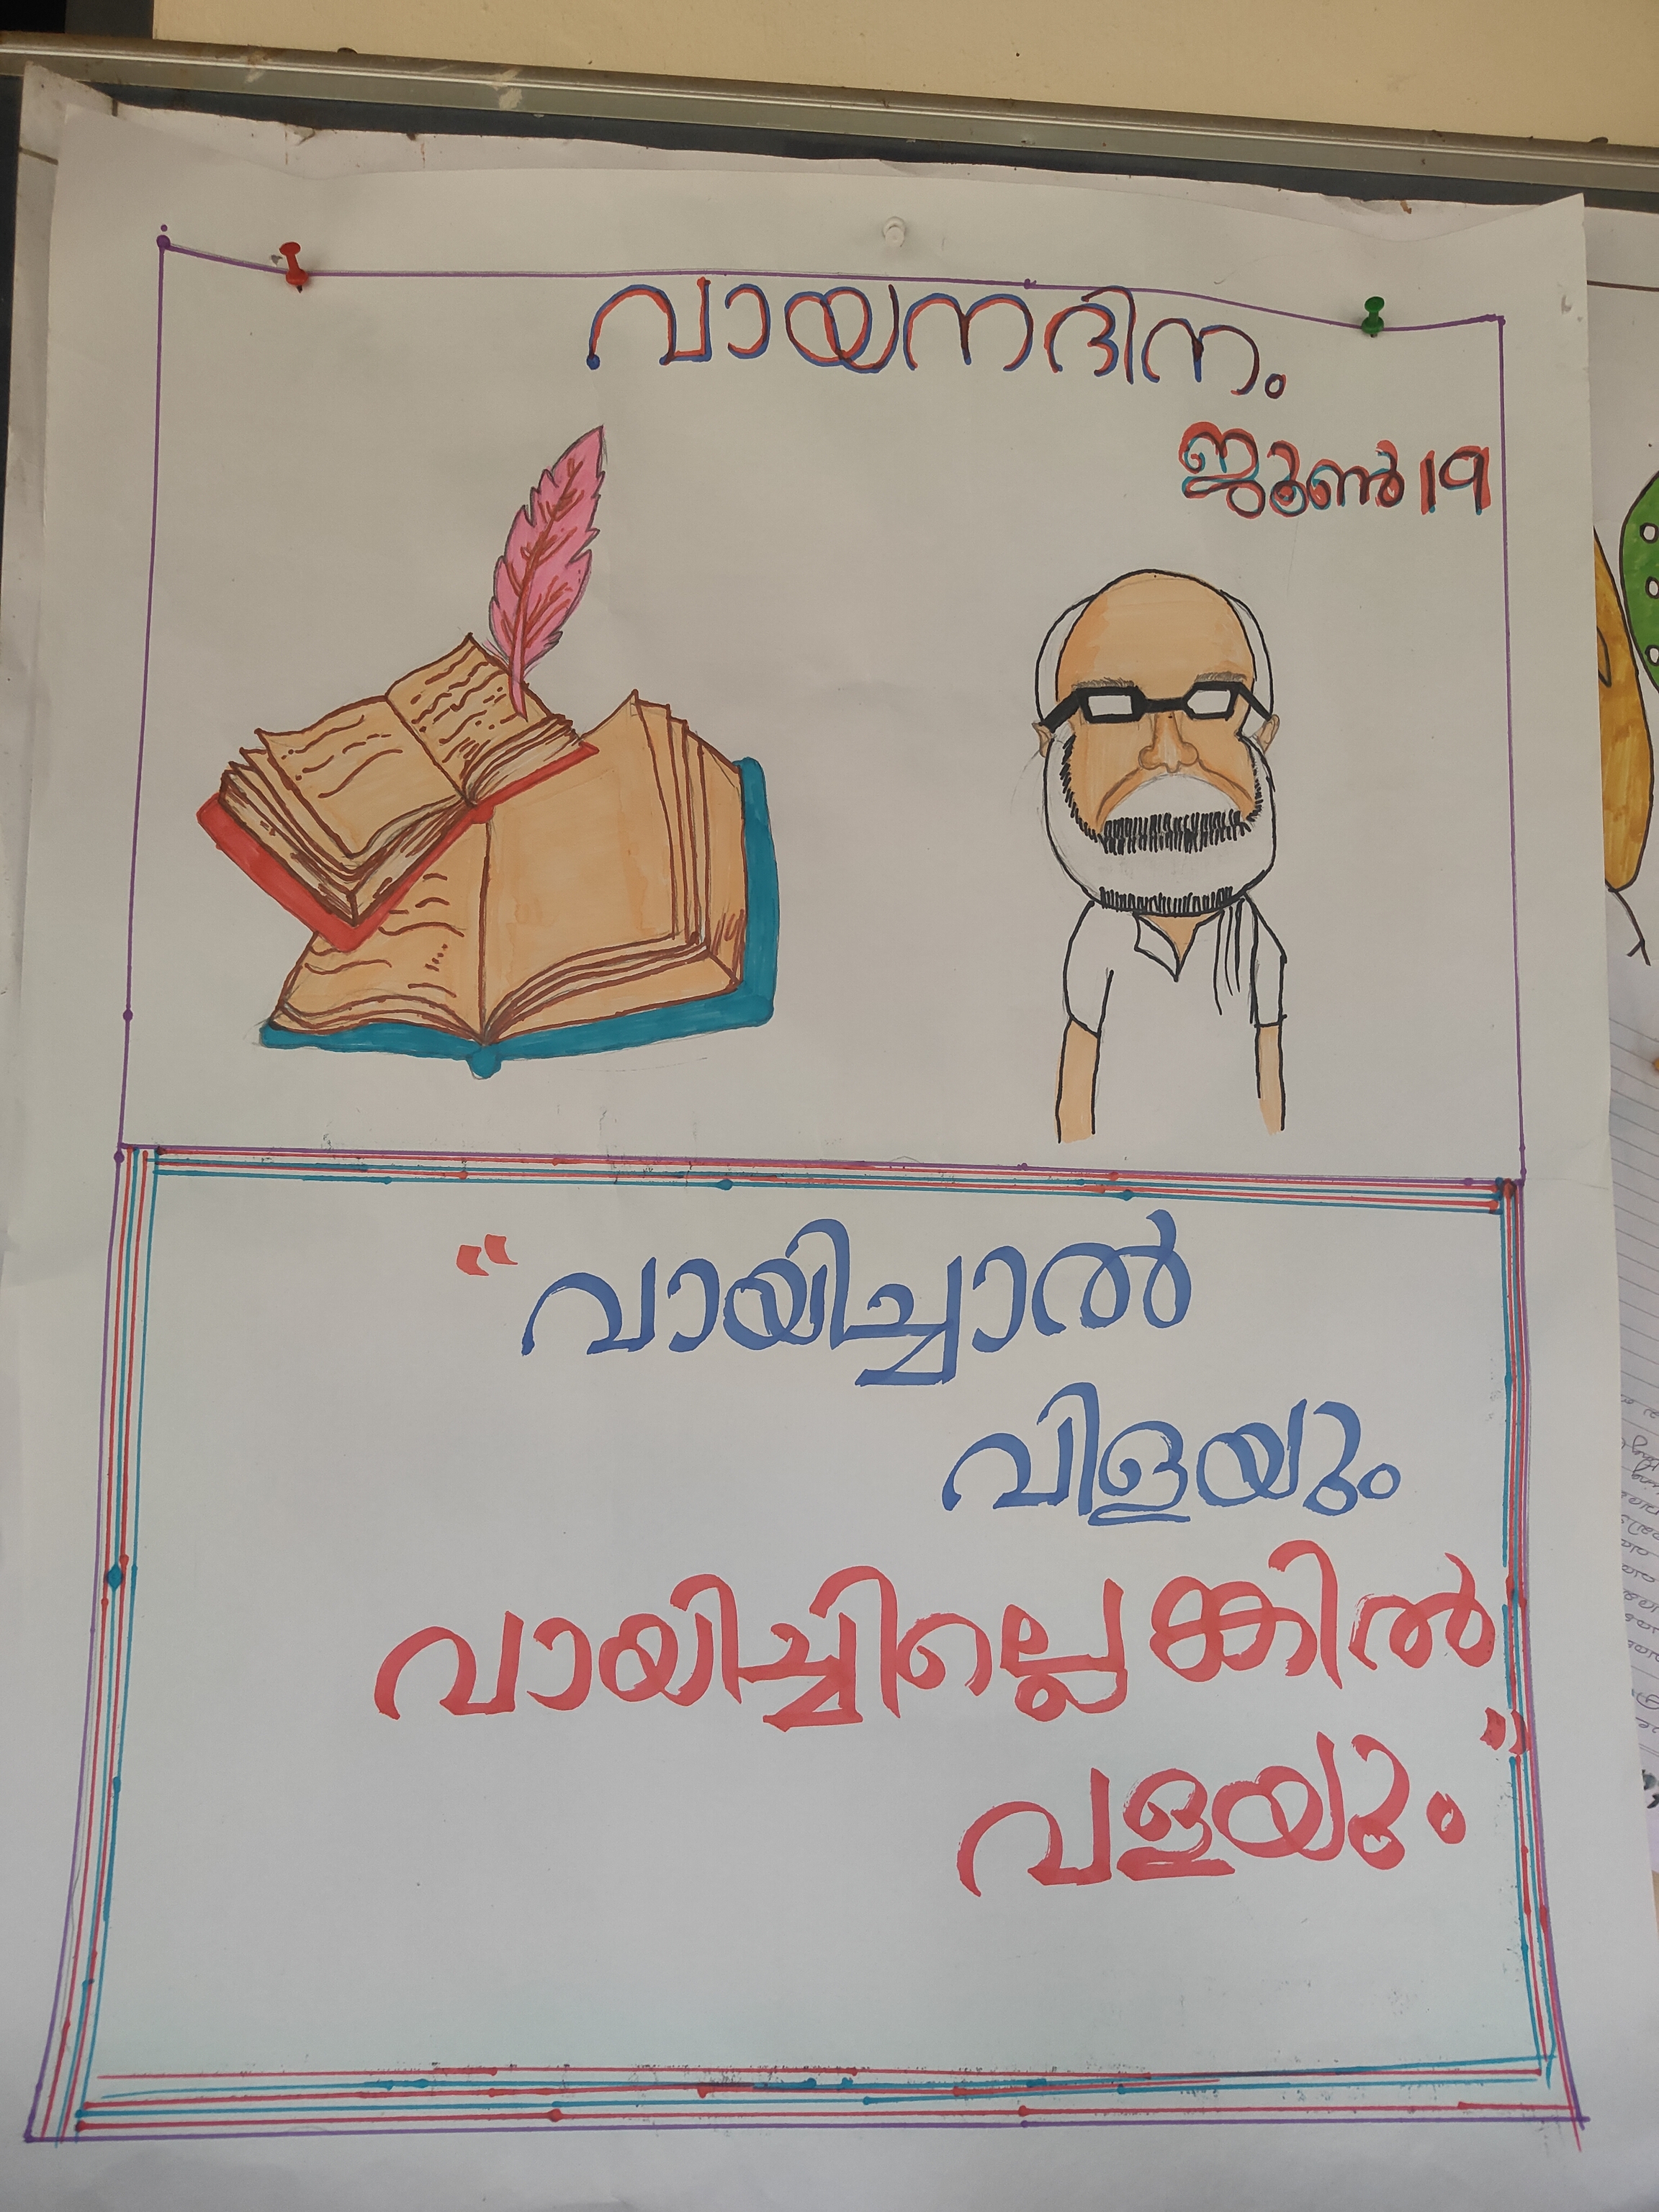 വായനദിനം
ജൂൺ 19
“വായിച്ചാൽ
വിളയും
വായിച്ചില്ലെങ്കിൽ
വളയും”